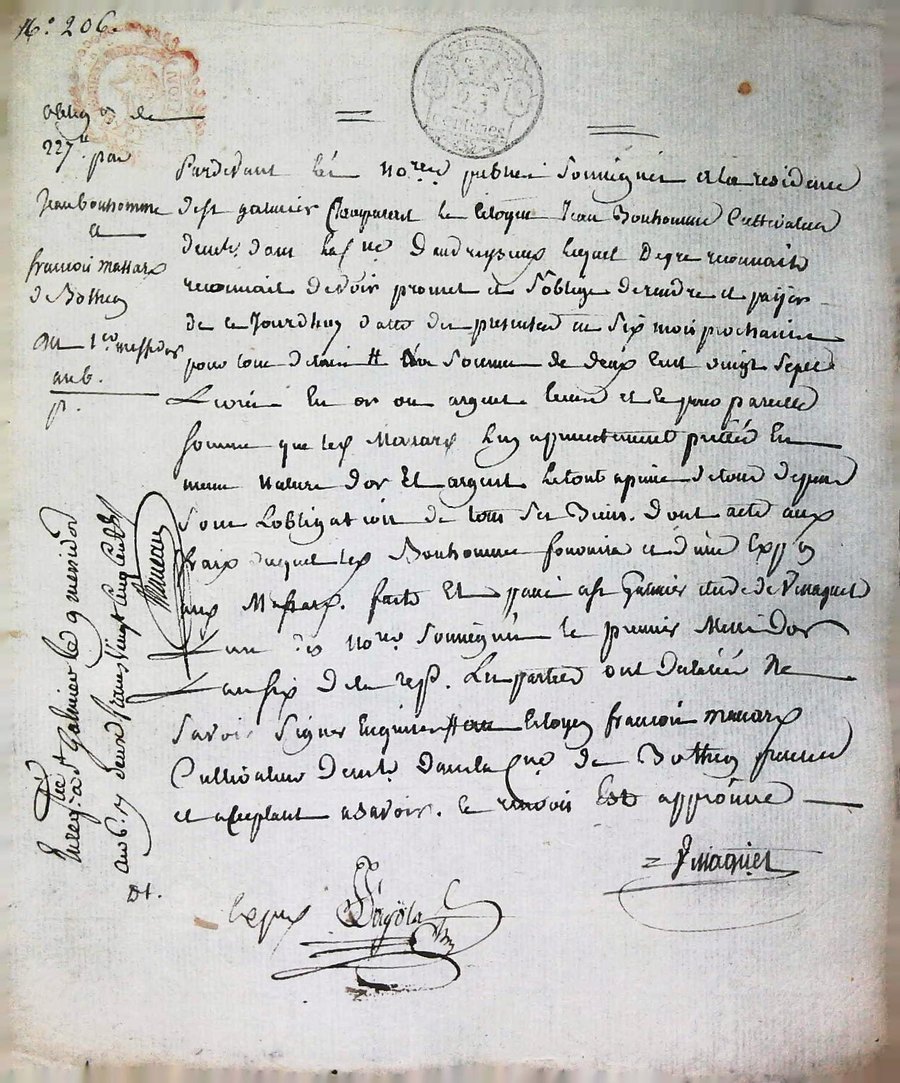 N.° 206.
obligon de
227tt par
Jean bonhomme
a
francois massard
de Botheon
Du 1.er messidor
an 6.
Pardevant les no.res publics soussignés a la residence
de st galmier Comparut le citoyen Jean Bonhomme Cultivateur
demt. dans la c.ne d'andrezieux lequel De gre reconnait
reconnait devoir promet et s'oblige de rendre et payer
de ce Jourdhuy datte des presentes en six mois prochains
pour tout delais # la somme de deux cent vingt sept
Livres En or ou argent et pareille
somme que led Massard lui a presentement prettée En
meme nature d'or Et argent Letout apeine de tous depens
sous Lobligation de tous ses Biens. dont acte aux
fraix duquel led Bonhomme fournira Expon
aux Massard. fait Et passé a st Galmier etude de Vinaquet
un des no.res soussignés le premier Messidor
an six de la rep. Les parties ont declaré Ne
savoir signer Enquises # au Citoyen francois massard
Cultivateur demt. dans la c.ne de Botheon present
et acceptant a savoir. le renvoi Est approuvé
Vinaquet
Enregé. a st Galmier le 9 messidor
an 6. deux francs vingt cinq centes